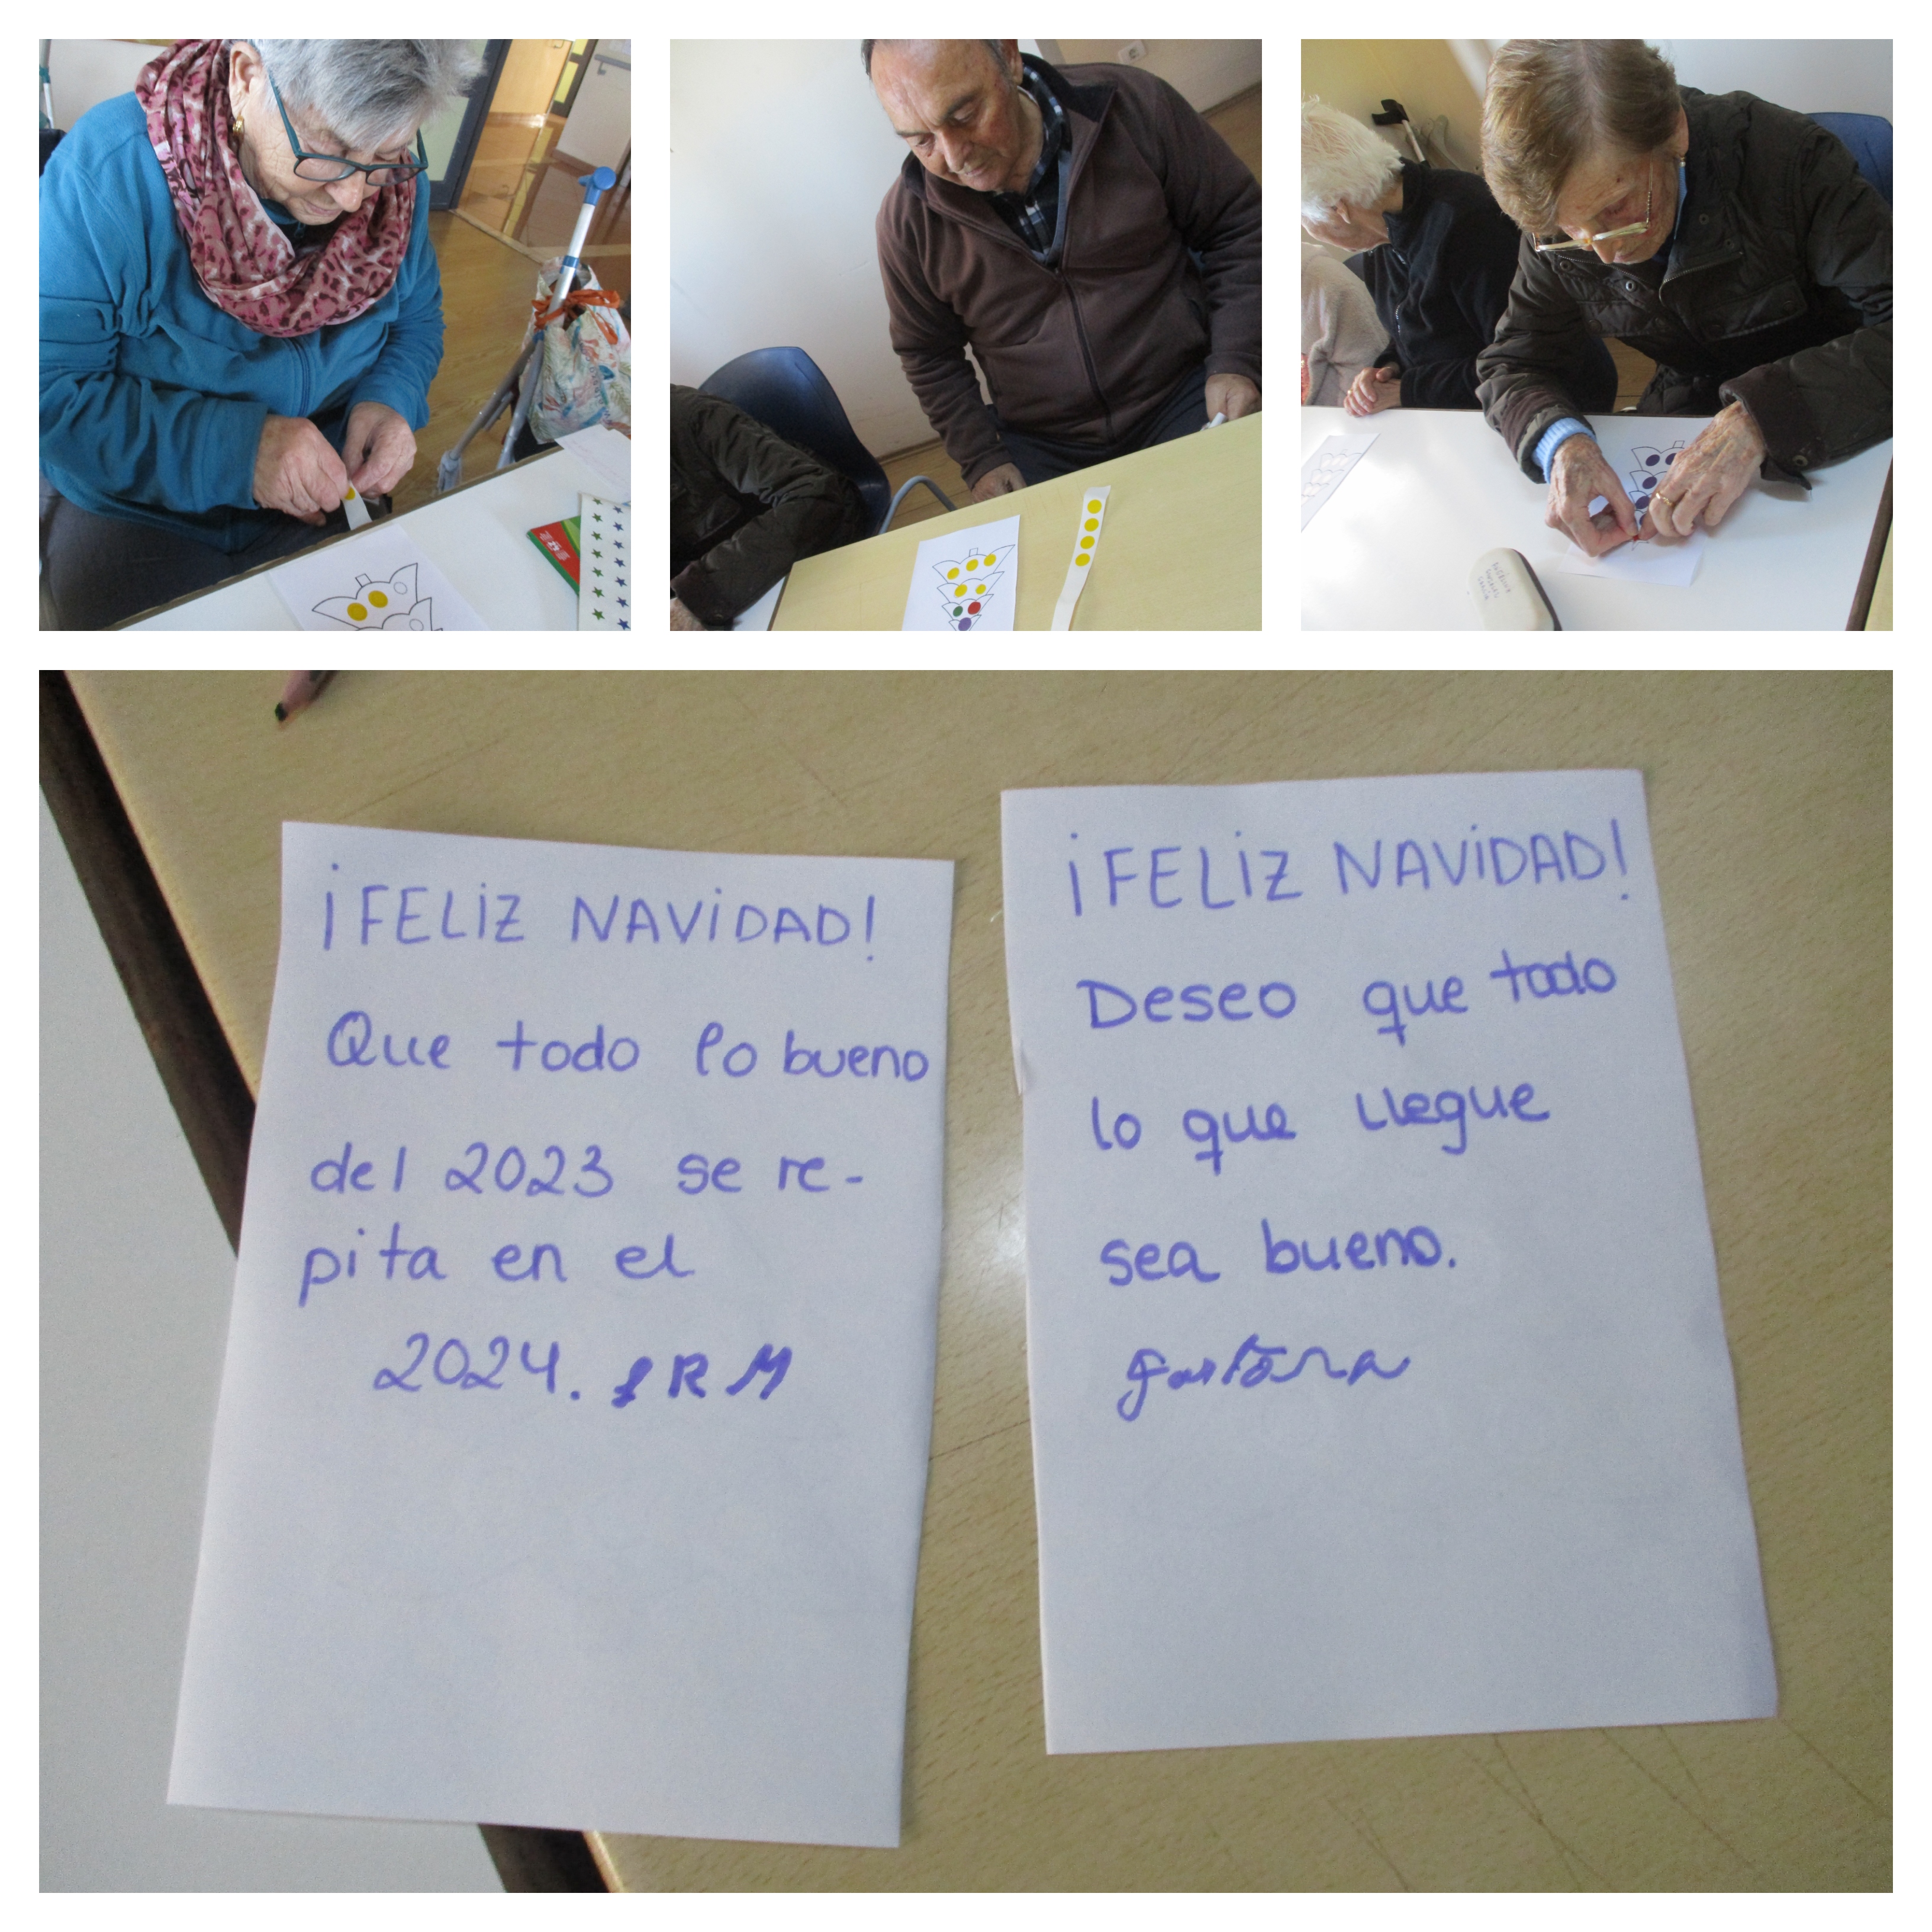 ¡FELIZ NAVIDAD!
Que todo lo bueno
del 2023 se re-
pita en el
2024. R M
¡FELIZ NAVIDAD!
Deseo que todo
lo que llegue
sea bueno.